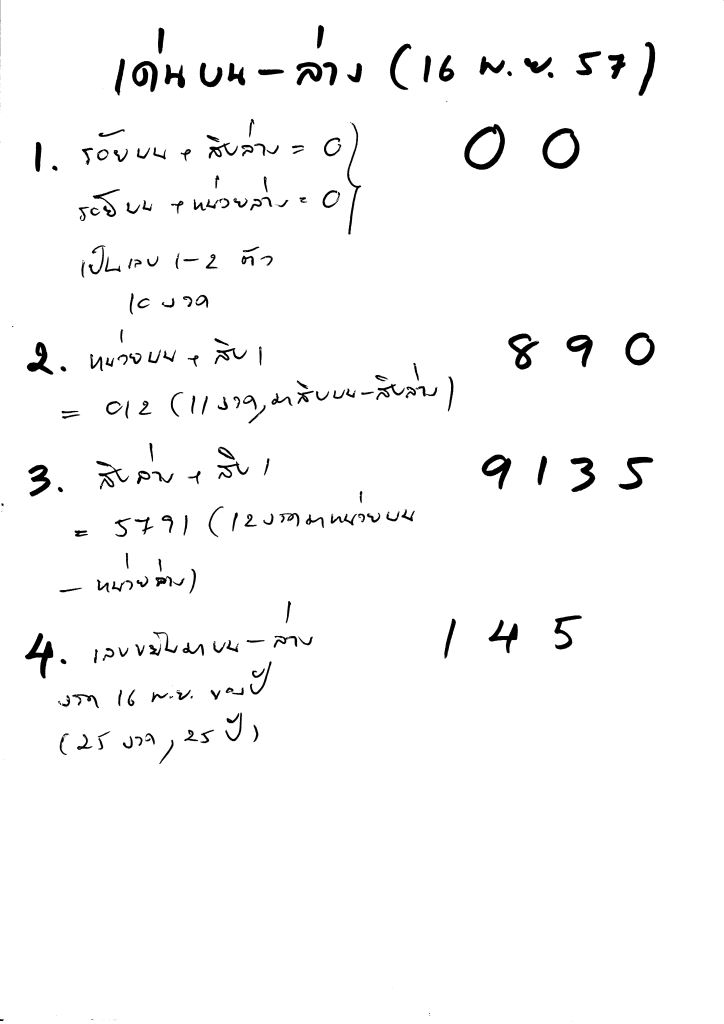 เด่นบน - ล่าง (16 พ.ย. 57)
1. ร้อยบน + สิบล่าง = 0 } 0 0
ร้อยบน + หน่วยล่าง = 0
เป็นเลข 1-2 ตัว
10 งวด
2. หน่วยบน + สิบ 1 8 9 0
= 012 (11 งวด, มาสิบบน-สิบล่าง)
3. สิบล่าง + สิบ 1 9 1 3 5
= 5791 (12 งวดมาหน่วยบน
- หน่วยล่าง)
4. เลขขยันมาบน - ล่าง 1 4 5
งวด 16 พ.ย. ของปี
(25 งวด, 25 ปี)